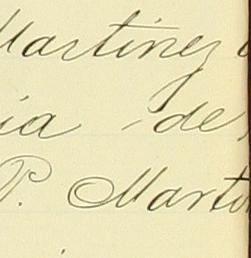 Martinez
ia de
P. Mart